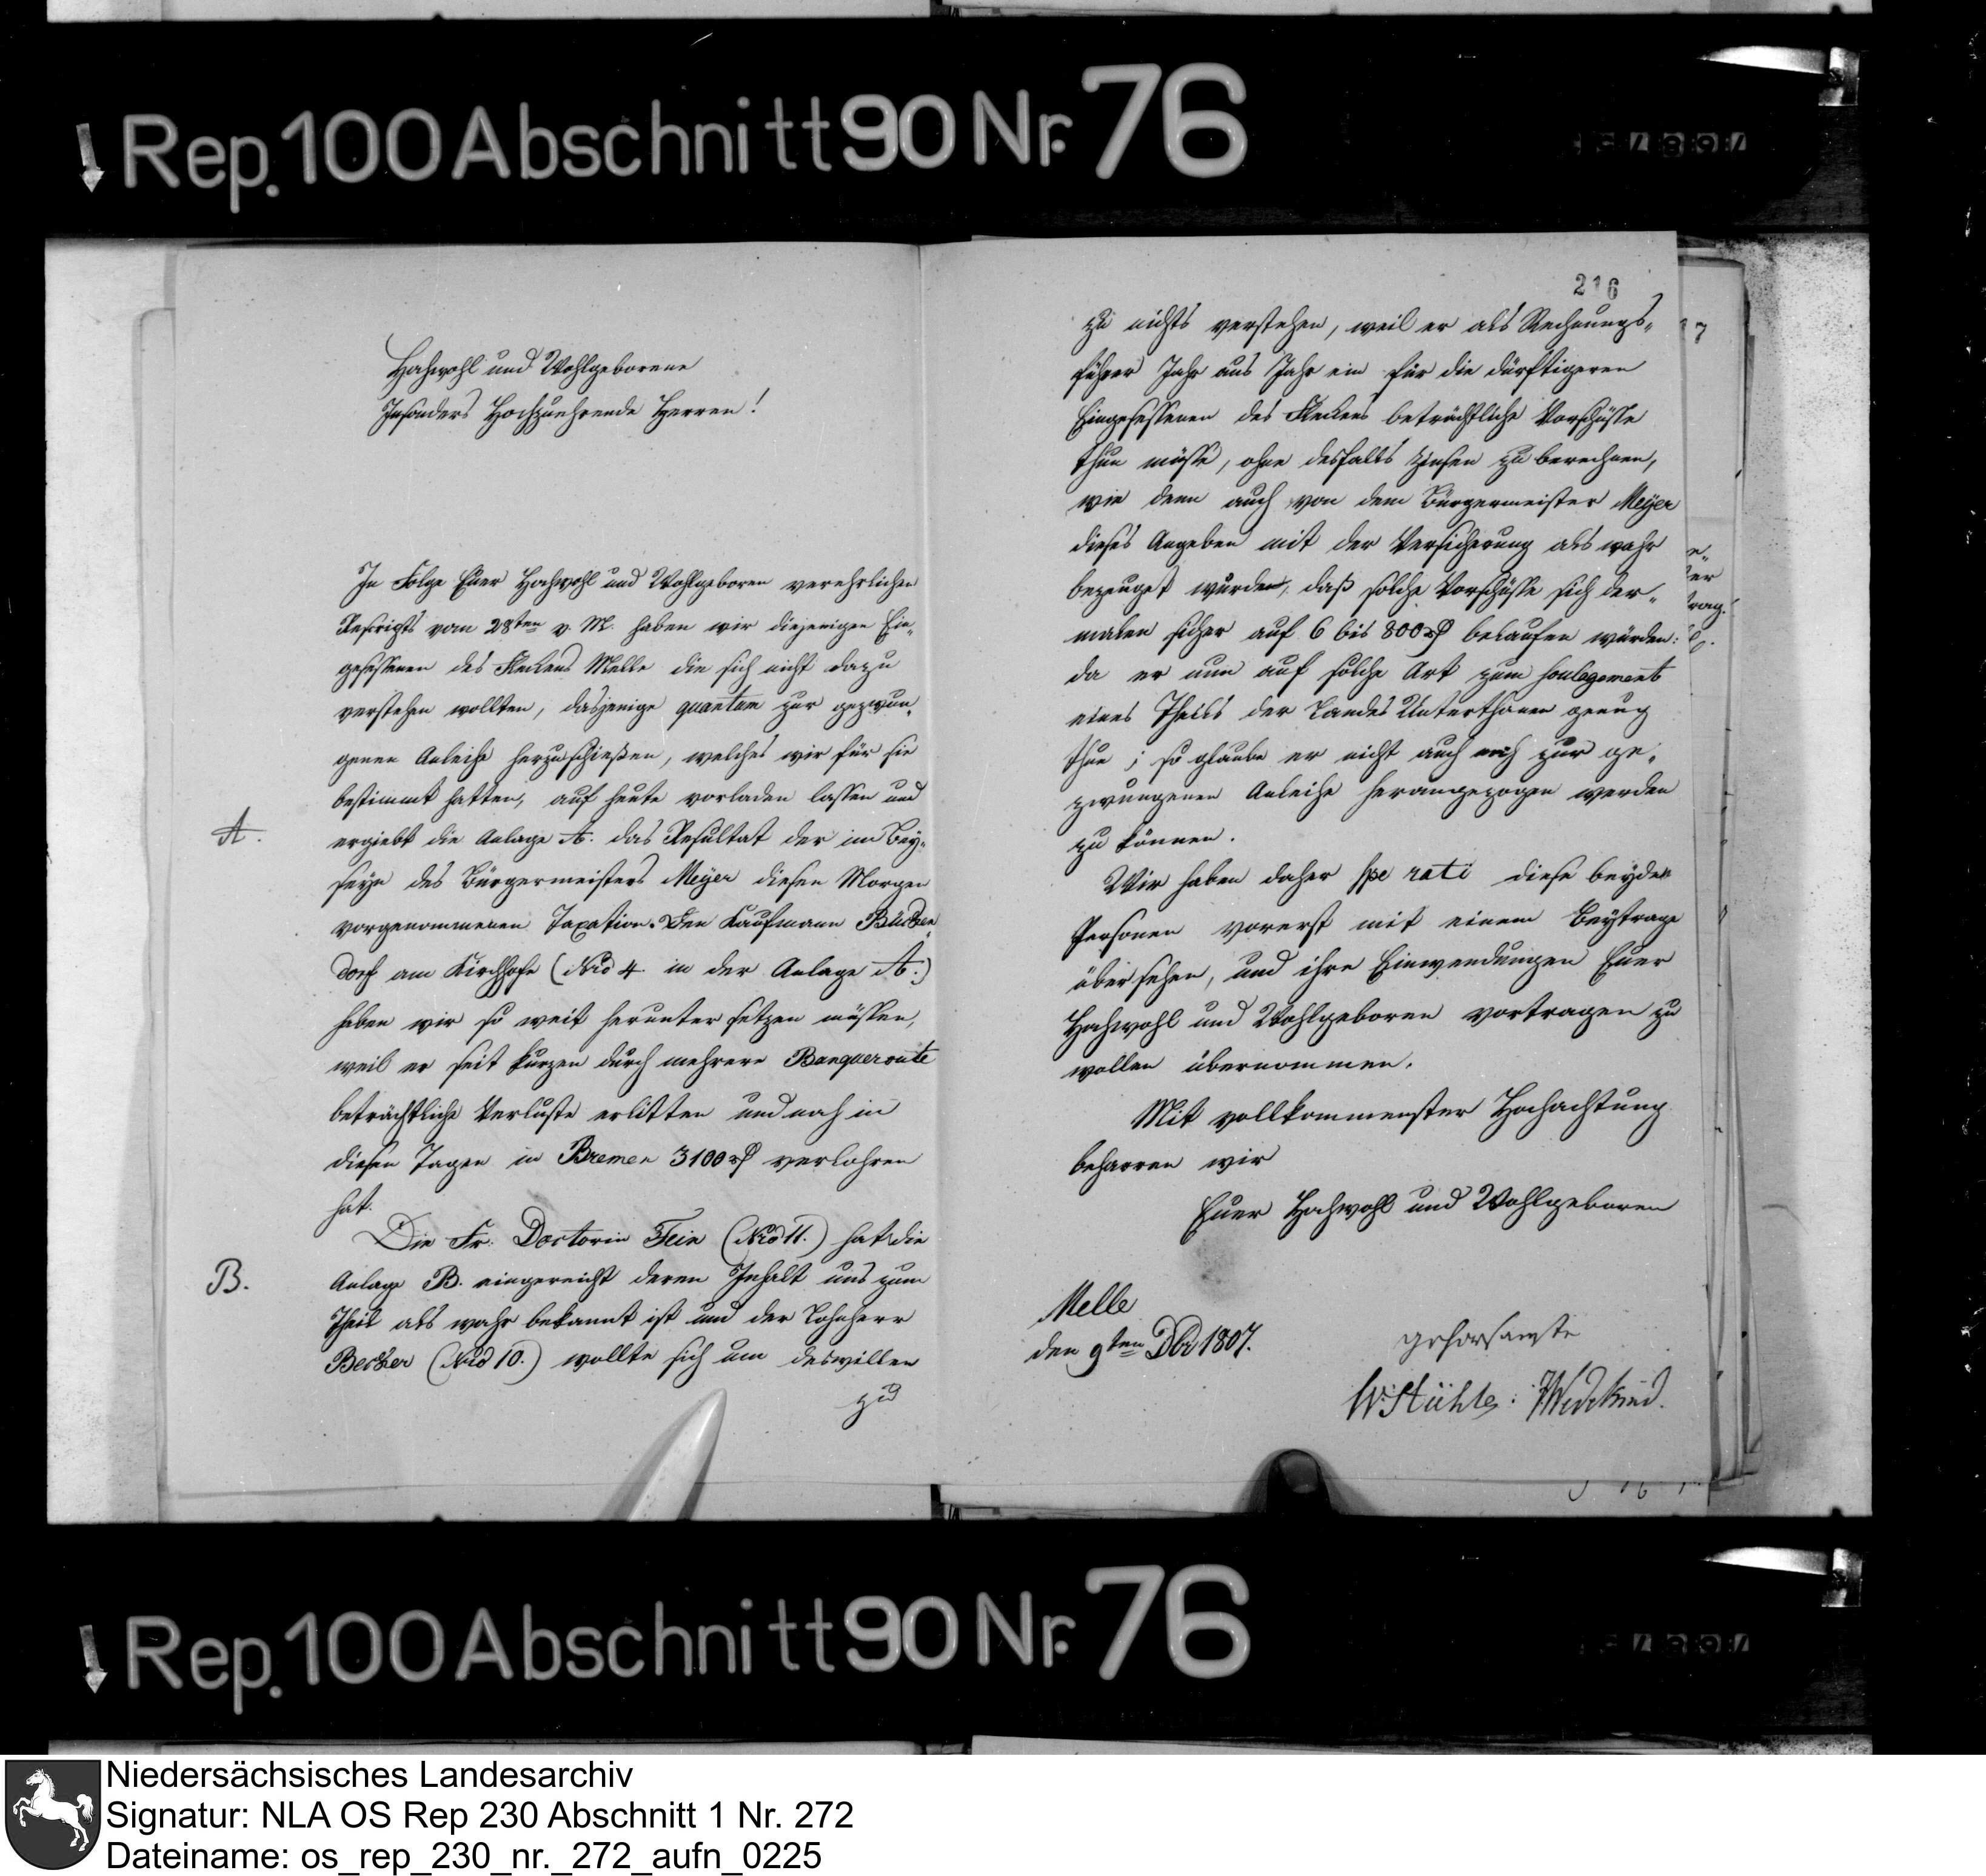 Rep. 100 Abschnitt 90 Nr. 76
Hochwohl und Wohlgeborene
Insonders Hochzuehrende Herren!
In Folge Euer Hochwohl und Wohlgeboren verehrlichen
Rescripts vom 28ten v. M. haben wir diejenigen Ein-
gesessenen des Fleckens Melle die sich nicht dazu
verstehen wollten, dasjenige quantum zur gezwun-
genen Anleihe herzuschießen, welches wir für sie
bestimmt hatten, auf heute vorladen lassen und
A. ergiebt die Anlage A. das Resultat der im Bey-
seyn des Bürgermeisters Meyer diesen Morgen
vorgenommenen Taxation. Den Kaufmann
dorf am Kirchhofe (Nro 4. in der Anlage A.)
haben wir so weit herunter setzen müssen,
weil er seit kurzen durch mehrere Banqueroute
beträchtliche Verluste erlitten und noch in
diesen Tagen in Bremen 3100 rth verlohren
hat.
Die Fr. Doctorin Fein (Nro 11.) hat die
B. Anlage B. eingereicht deren Inhalt uns zum
Theil als wahr bekannt ist und der Lohnherr
Becker (Nro 10.) wollte sich um deswillen
zu
216
zu nichts verstehen, weil er als Rechnungs-
führer Jahr aus Jahr ein für die dürftigeren
Eingesessenen des Fleckens beträchtliche Vorschüsse
thun müsse, ohne desfalls Zinsen zu berechnen,
wie denn auch von dem Bürgermeister Meyer
dieses Angeben mit der Versicherung als wahr
bezeuget wurde, daß solche Vorschüsse sich der-
malen sicher auf 6 bis 800 rth belaufen würden:
da er nun auf solche Art zum soulagement
eines Theils der Landes Unterthanen genug
thue; so glaube er nicht auch noch zur ge-
zwungenen Anleihe herangezogen werden
zu können.
Wir haben daher spe rati diese beyden
Personen vorerst mit einem Beytrage
übersehen, und ihre Einwendungen Euer
Hochwohl und Wohlgeboren vortragen zu
wollen übernommen.
Mit vollkommenster Hochachtung
beharren wir
Euer Hochwohl und Wohlgeboren
Melle
den 9ten Dbr 1807.
gehorsamste
W. Stühle. Wedekind.
Rep. 100 Abschnitt 90 Nr. 76
Niedersächsisches Landesarchiv
Signatur: NLA OS Rep 230 Abschnitt 1 Nr. 272
Dateiname: os_rep_230_nr._272_aufn_0225